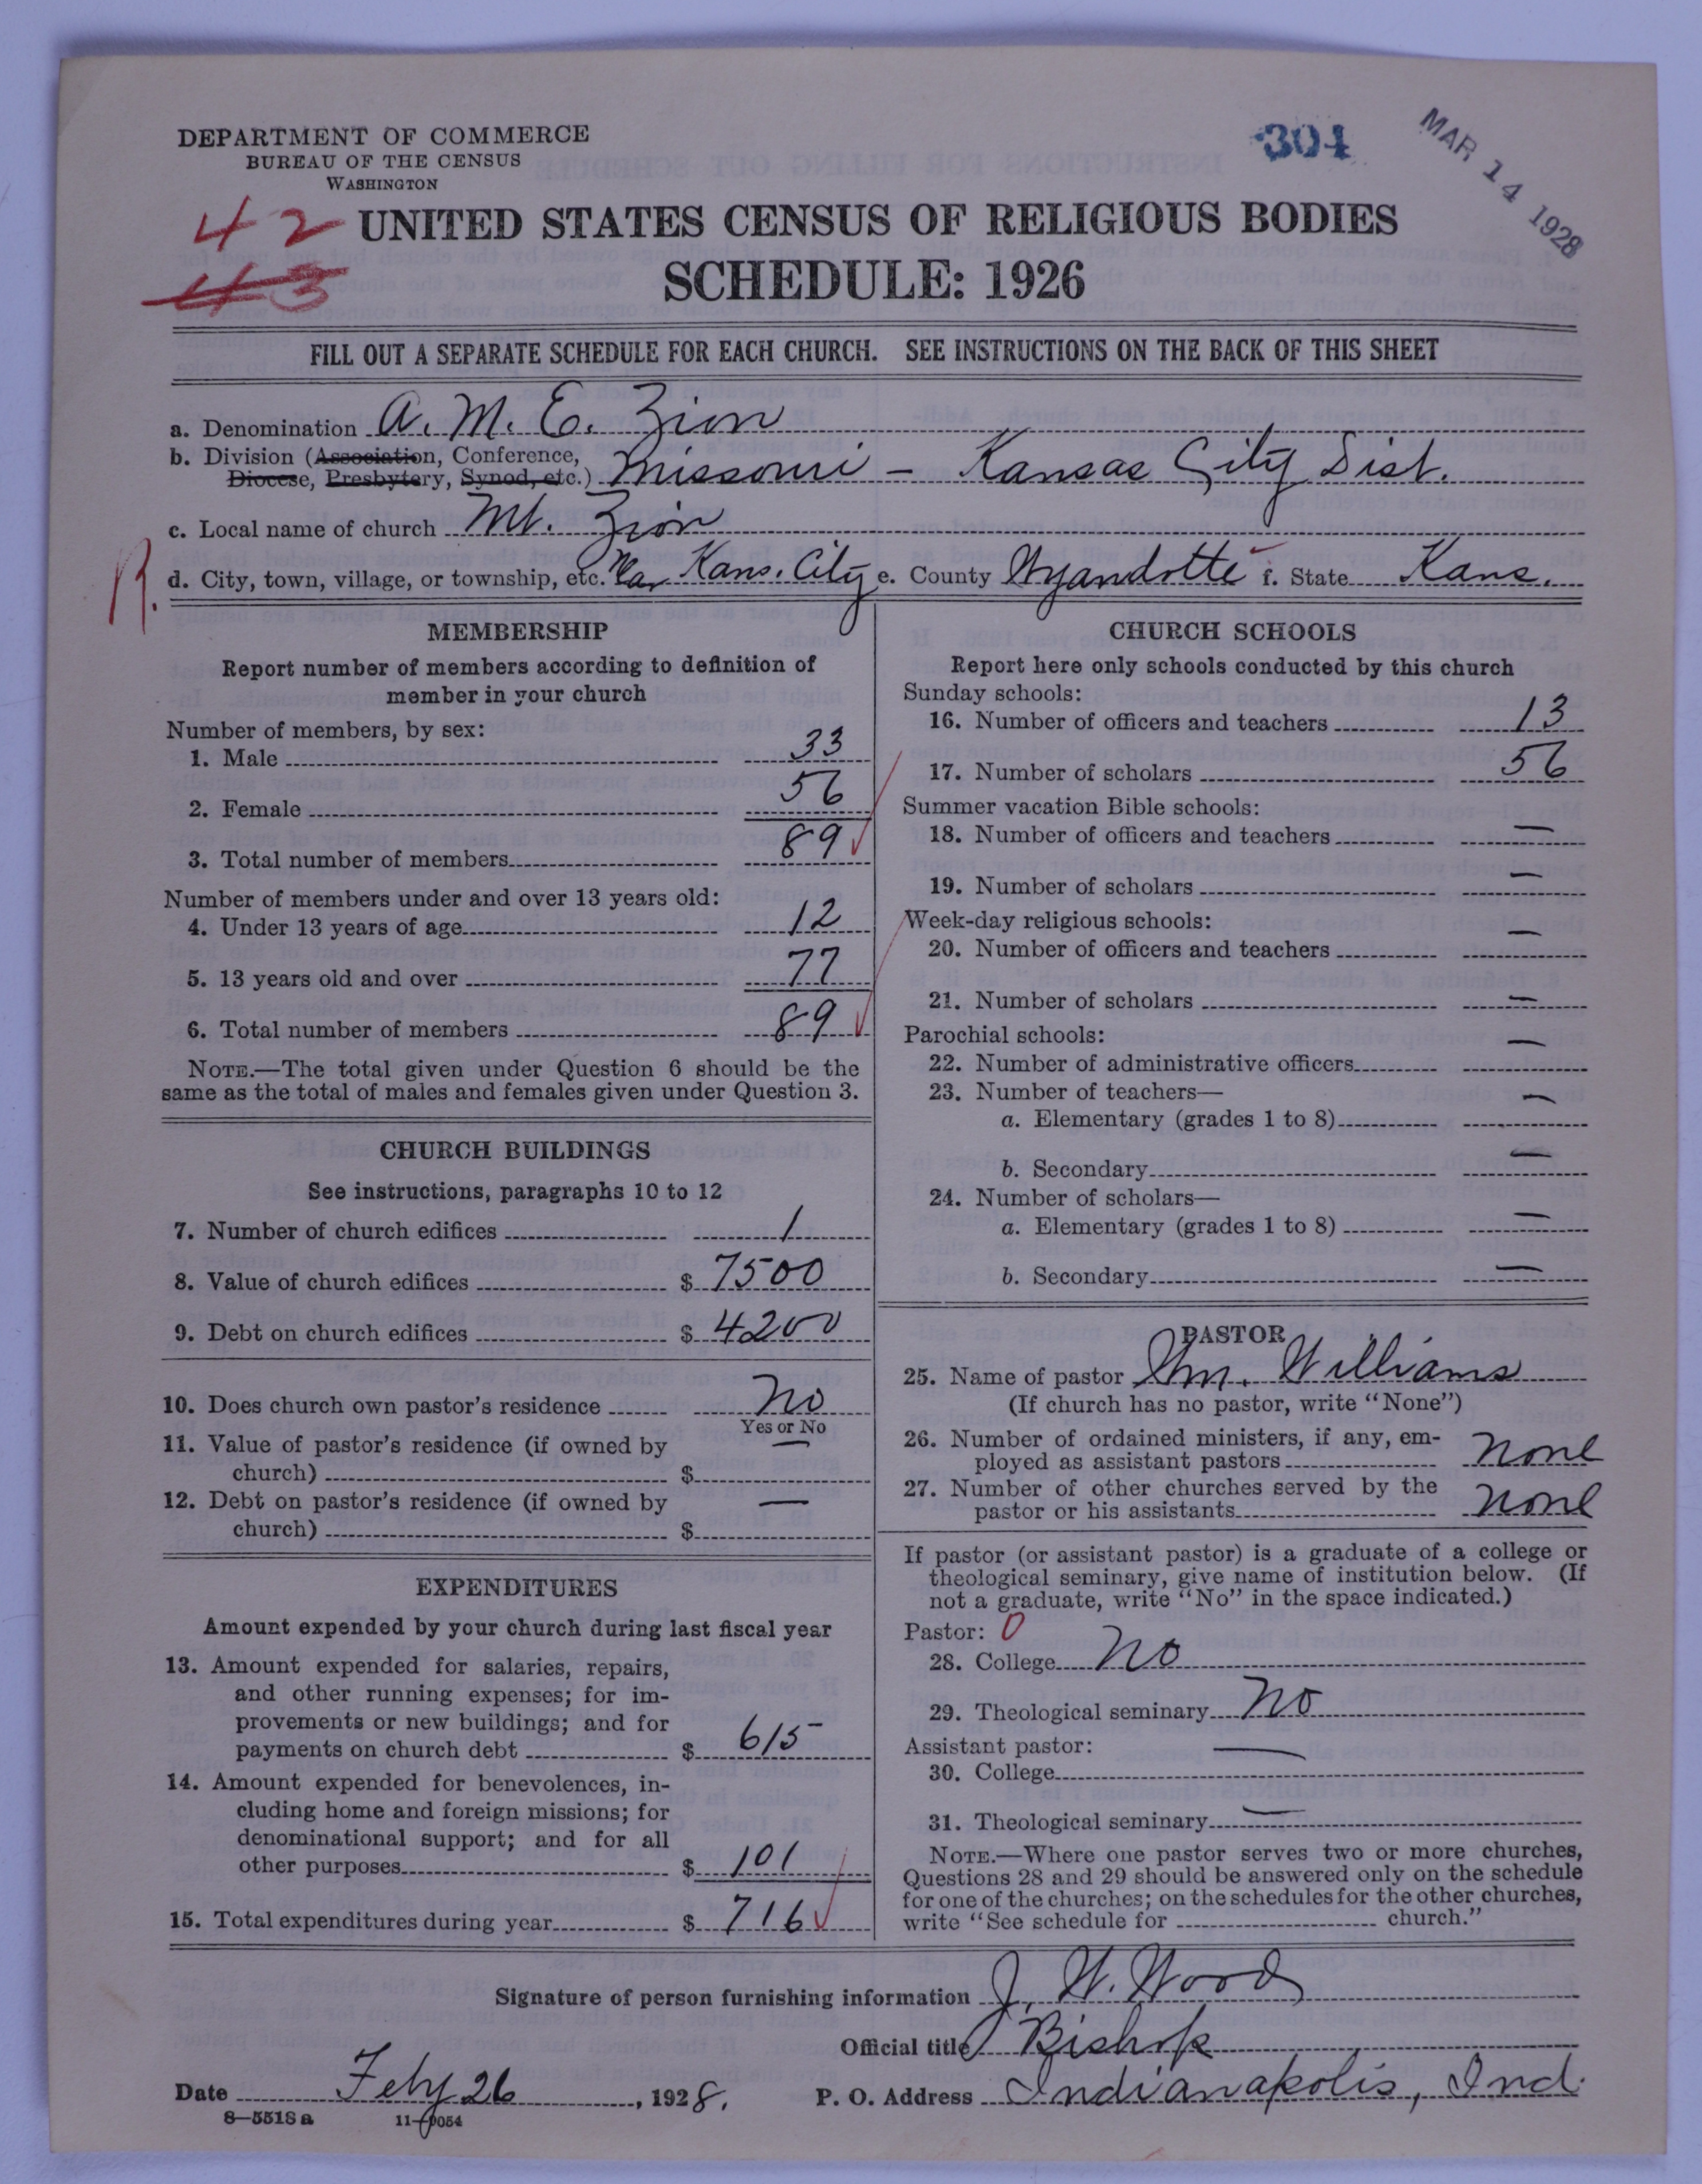 DEPARTMENT OF COMMERCE
BUREAU OF THE CENSUS
WASHINGTON
304
MAR 14 1928
42
43
UNITED STATES CENSUS OF RELIGIOUS BODIES
SCHEDULE: 1926
FILL OUT A SEPARATE SCHEDULE FOR EACH CHURCH. SEE INSTRUCTIONS ON THE BACK OF THIS SHEET
a. Denomination A. M. E. Zion
b. Division (Association, Conference,
Diocese, Presbytery, Synod, etc.) Missouri - Kansas City Dist.
c. Local name of church Mt. Zion
R. d. City, town, village, or township, etc. Near Kans. City e. County Wyandotte f. State Kans.
MEMBERSHIP
Report number of members according to definition of
member in your church
Number of members, by sex:
1. Male 33
2. Female 56
3. Total number of members 89
Number of members under and over 13 years old:
4. Under 13 years of age 12
5. 13 years old and over 77
6. Total number of members 89
NOTE.—The total given under Question 6 should be the
same as the total of males and females given under Question 3.
CHURCH BUILDINGS
See instructions, paragraphs 10 to 12
7. Number of church edifices 1
8. Value of church edifices $ 7500
9. Debt on church edifices $ 4200
10. Does church own pastor's residence No
Yes or No
11. Value of pastor's residence (if owned by
church) $ —
12. Debt on pastor's residence (if owned by
church) $ —
EXPENDITURES
Amount expended by your church during last fiscal year
13. Amount expended for salaries, repairs,
and other running expenses; for im-
provements or new buildings; and for
payments on church debt $ 615
14. Amount expended for benevolences, in-
cluding home and foreign missions; for
denominational support; and for all
other purposes $ 101
15. Total expenditures during year $ 716
CHURCH SCHOOLS
Report here only schools conducted by this church
Sunday schools:
16. Number of officers and teachers 13
17. Number of scholars 56
Summer vacation Bible schools:
18. Number of officers and teachers —
19. Number of scholars —
Week-day religious schools:
20. Number of officers and teachers —
21. Number of scholars —
Parochial schools:
22. Number of administrative officers —
23. Number of teachers—
a. Elementary (grades 1 to 8) —
b. Secondary —
24. Number of scholars—
a. Elementary (grades 1 to 8) —
b. Secondary —
PASTOR
25. Name of pastor Wm. Williams
(If church has no pastor, write "None")
26. Number of ordained ministers, if any, em-
ployed as assistant pastors None
27. Number of other churches served by the
pastor or his assistants None
If pastor (or assistant pastor) is a graduate of a college or
theological seminary, give name of institution below. (If
not a graduate, write "No" in the space indicated.)
Pastor: 0
28. College No
29. Theological seminary No
Assistant pastor:
30. College —
31. Theological seminary —
NOTE.—Where one pastor serves two or more churches,
Questions 28 and 29 should be answered only on the schedule
for one of the churches; on the schedules for the other churches,
write "See schedule for church."
Signature of person furnishing information J. W. Wood
Official title Bishop
Date Feby 26, 1928. P. O. Address Indianapolis, Ind.
8—5518a 11—9054